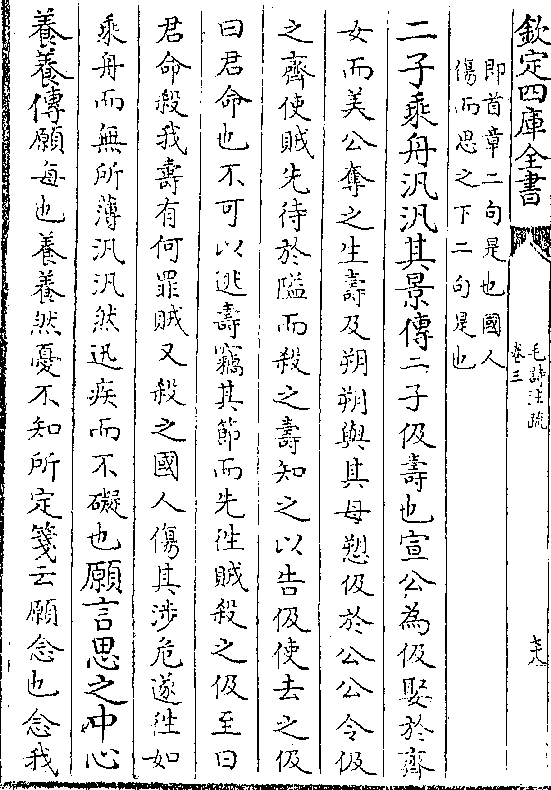 欽定四庫全書
毛詩注疏
卷三
即首章二句是也國人
傷而思之下二句是也
二子乘舟汎汎其景傳二子伋壽也宣公為伋娶於齊
女而美公奪之生壽及朔朔與其母愬伋於公公令伋
之齊使賊先待於隘而殺之壽知之以告伋使去之伋
曰君命也不可以逃壽竊其節而先徃賊殺之伋至曰
君命殺我壽有何罪賊又殺之國人傷其涉危遂徃如
乘舟而無所薄汎汎然迅疾而不礙也願言思之中心
養養傳願每也養養然憂不知所定箋云願念也念我